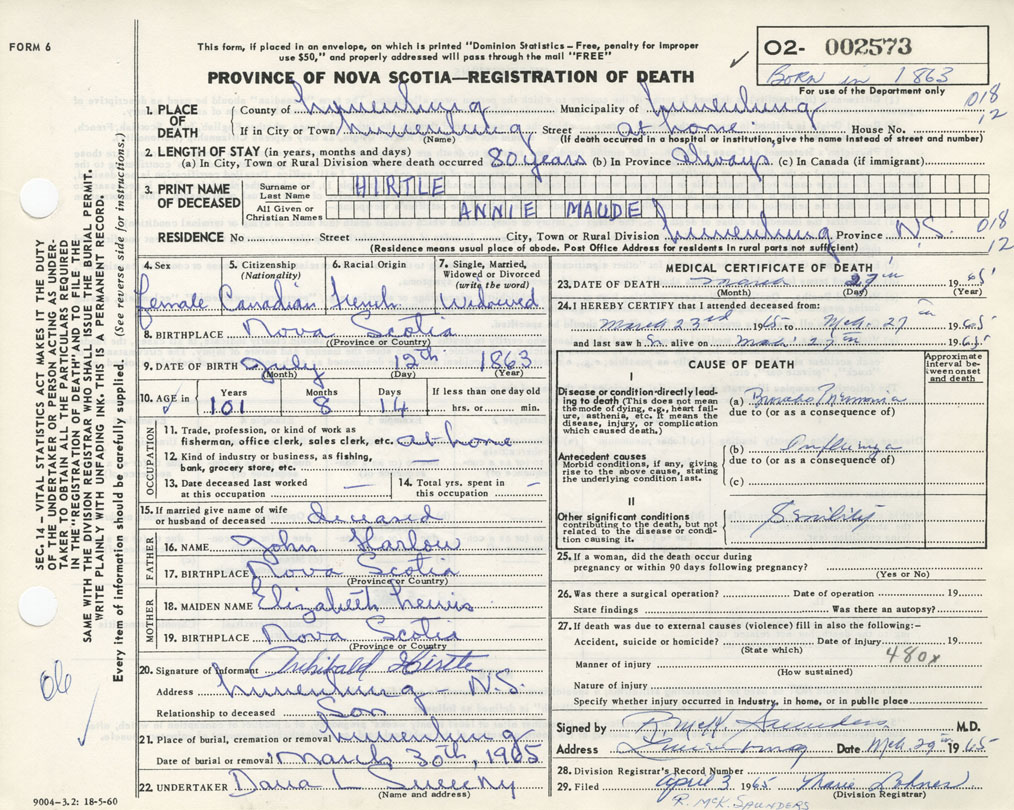 FORM 6
This form, if placed in an envelope, on which is printed "Dominion Statistics – Free, penalty for improper
use $50," and properly addressed will pass through the mail "FREE"
O2- 002573
Born in 1863
For use of the Department only
PROVINCE OF NOVA SCOTIA—REGISTRATION OF DEATH
018
12
1. PLACE OF DEATH
County of Lunenburg Municipality of Lunenburg
If in City or Town Lunenburg Street at home House No.
(Name) (If death occurred in a hospital or institution, give the name instead of street and number)
2. LENGTH OF STAY (in years, months and days)
(a) In City, Town or Rural Division where death occurred 80 years (b) In Province Always (c) In Canada (if immigrant)
3. PRINT NAME OF DECEASED
Surname or Last Name HIRTLE
All Given or Christian Names ANNIE MAUDE
RESIDENCE No Street City, Town or Rural Division Lunenburg Province N.S. 018
12
(Residence means usual place of abode. Post Office Address for residents in rural parts not sufficient)
4. Sex
Female
5. Citizenship
(Nationality)
Canadian
6. Racial Origin
French
7. Single, Married,
Widowed or Divorced
(write the word)
Widowed
8. BIRTHPLACE Nova Scotia
(Province or Country)
9. DATE OF BIRTH July 12th 1863
(Month) (Day) (Year)
10. AGE in
Years Months Days If less than one day old
101 8 14 hrs. or min.
OCCUPATION
11. Trade, profession, or kind of work as
fisherman, office clerk, sales clerk, etc. at home
12. Kind of industry or business, as fishing,
bank, grocery store, etc. —
13. Date deceased last worked
at this occupation —
14. Total yrs. spent in
this occupation —
15. If married give name of wife
or husband of deceased deceased
FATHER
16. NAME John Harlow
17. BIRTHPLACE Nova Scotia
(Province or Country)
MOTHER
18. MAIDEN NAME Elizabeth Lewis
19. BIRTHPLACE Nova Scotia
(Province or Country)
20. Signature of informant Archibald Hirtle
Address Lunenburg - N.S.
Relationship to deceased Son
21. Place of burial, cremation or removal Lunenburg
Date of burial or removal March 30th, 1965
22. UNDERTAKER Dana L Sweeny
(Name and address)
9004-3.2: 18-5-60
MEDICAL CERTIFICATE OF DEATH
23. DATE OF DEATH March 27th 1965
(Month) (Day) (Year)
24. I HEREBY CERTIFY that I attended deceased from:
March 23rd 1965 to Mch. 27th 1965
and last saw h er alive on March 27th 1965
CAUSE OF DEATH
Approximate
interval be-
tween onset
and death
I
Disease or condition directly lead-
ing to death (This does not mean
the mode of dying, e.g., heart fail-
ure, asthenia, etc. It means the
disease, injury, or complication
which caused death.)
(a) Broncho Pneumonia
due to (or as a consequence of)
Antecedent causes
Morbid conditions, if any, giving
rise to the above cause, stating
the underlying condition last.
(b) Influenza
due to (or as a consequence of)
(c)
II
Other significant conditions
contributing to the death, but not
related to the disease or condi-
tion causing it.
Senility
25. If a woman, did the death occur during
pregnancy or within 90 days following pregnancy?
(Yes or No)
26. Was there a surgical operation? Date of operation 19
State findings Was there an autopsy?
27. If death was due to external causes (violence) fill in also the following:-
Accident, suicide or homicide? Date of injury 19
(State which) 480x
Manner of injury
(How sustained)
Nature of injury
Specify whether injury occurred in industry, in home, or in public place
Signed by R. McK. Saunders M.D.
Address Lunenburg Date Mch 29th 1965
28. Division Registrar's Record Number
29. Filed April 3 1965 Marie Lohnes
(Division Registrar)
R. McK. SAUNDERS
SEC. 14 – VITAL STATISTICS ACT MAKES IT THE DUTY
OF THE UNDERTAKER OR PERSON ACTING AS UNDER-
TAKER TO OBTAIN ALL THE PARTICULARS REQUIRED
IN THE "REGISTRATION OF DEATH" AND TO FILE THE
SAME WITH THE DIVISION REGISTRAR WHO SHALL ISSUE THE BURIAL PERMIT.
WRITE PLAINLY WITH UNFADING INK. THIS IS A PERMANENT RECORD.
Every item of information should be carefully supplied. (See reverse side for instructions.)
06